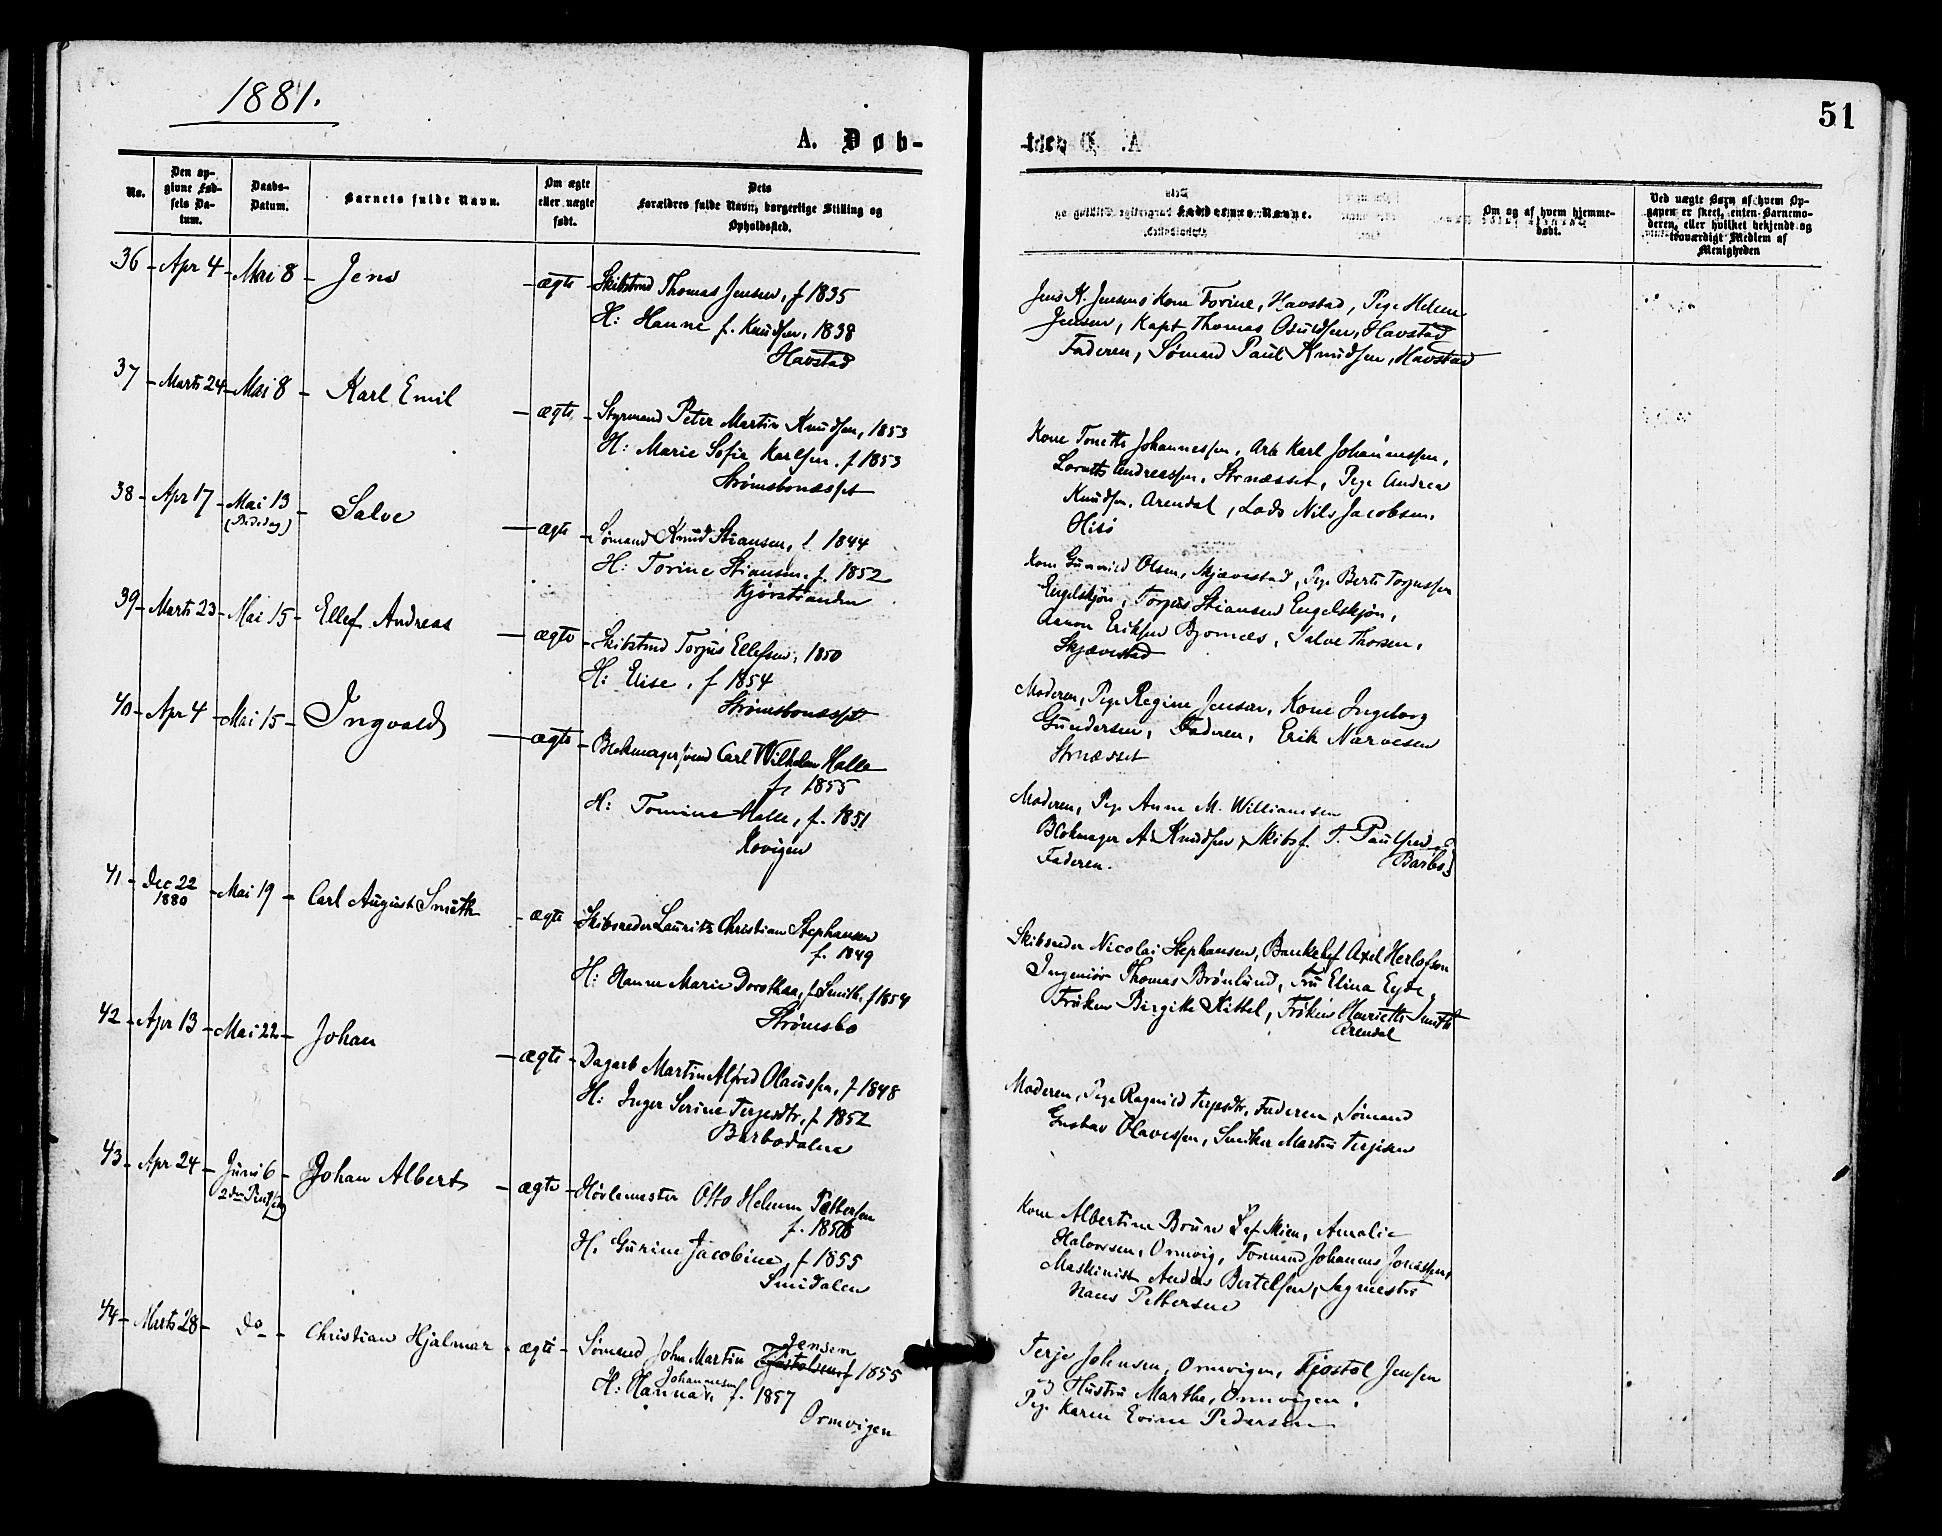 1881.
51
A. Døb-
No.
Den op-
givne Fød-
sels Da-
tum.
Daabs-
Datum.
Barnets fulde Navn.
Om ægte
eller uægte
født.
Dets
Forældres fulde Navn, borgerlige Stilling og
Opholdssted.
Faddernes Navne.
Om og af hvem hjemme-
døbt.
Ved uægte Børn af hvem Op-
gaven er skeet, enten Barnemo-
deren, eller hvilket bekjendt og
troværdigt Medlem af
Menigheden
36 - Apr 4 - Mai 8 - Jens - ægte - Skibstmd Thomas Jensen, f 1835
H: Hanne f. Knudsen, 1838
Havstad
Jens K. Jensens Kone Torine, Havstad, Pige Helene
Jensen, Kapt Thomas Osuldsen, Havstad
Faderen, Sømand Paul Knudsen, Havstad
37 - Marts 24 - Mai 8 - Karl Emil - ægte - Styrmand Peter Martin Knudsen, 1853
H: Marie Sofie Karlsen, f 1853
Strømsbonæsset
Kone Tonette Johannessen, Arb Karl Johannessen,
Andreassen, Strnæsset, Pige Andrea
Knudsen, Arendal, Lods Nils Jacobsen,
Hisø
38 - Apr 17 - Mai 13 - Salve - ægte - Sømand Knud Stiansen, f 1844
(Bededag)
H: Torine Stiansen, f. 1852
Kjørstranden
Kone Gunnild Olsen, Skjævestad, Pige Berte Torjussen
Engelskjøn, Torjus Stiansen Engelskjøn,
Aanon Eriksen Bjornæs, Salve Thorsen,
Skjævestad
39 - Marts 23 - Mai 15 - Ellef Andreas - ægte - Skibstmd Torjus Ellefsen, 1850
H: Elise, f 1854
Strømsbonæsset
Moderen, Pige Regine Jensen, Kone Ingeborg
Gundersen, Faderen, Erik Narvesen
Strnæsset
40 - Apr 4 - Mai 15 - Ingvald - ægte - Blokmagersvend Carl Wilhelm Halle
f. 1855
H: Tomine Halle, f. 1851
Moderen, Pige Anne M. Williamsen
Blokmager A. Knudsen, Skibsf. T. Paulsen
Barbo
Faderen.
41 - Dec 22 - Mai 19 - Carl August Smith - ægte - Skibsreder Lauritz Christian Stephansen
1880
f. 1849
H: Hanne Marie Dorothea, f. Smith, f 1854
Strømsbo
Skibsreder Nicolai Stephansen, Bankchef Axel Herlofson
Ingeniør Thomas Brønlund, Fru Elina Eyde,
Frøken Birgitte Kittel, Frøken Henriette Smith
Arendal
42 - Apr 13 - Mai 22 - Johan - ægte - Dagarb Martin Alfred Olaussen, f 1848
H: Inger Serine Terjesdtr, f 1852
Barbodalen
Moderen, Pige Ragnild Terjesdtr, Faderen, Sømand
Gustav Olavessen, Snedker Martin Terjesen
43 - Apr 24 - Juni 6 - Johan Albert - ægte - Høvlemester Otto Helmer Pettersen
f. 1856
H. Gurine Jacobine, f 1855
Smidalen
Kone Albertine Amalie
Halvorsen, Ormvig, Tomand Johannes Jonassen,
Maskinist Anders Bertelsen, Sagmester
Hans Pettersen
44 - Marts 28 - do - Christian Hjalmar - ægte - Sømand John Martin Jensen f 1855
Johannesen
H: Hanna f. 1857
Ormvigen
Terje Johnsen, Ormvigen, Kjøstol Jensen
og Hustru Marthe, Ormvigen,
Pige Karen Evine Pedersen